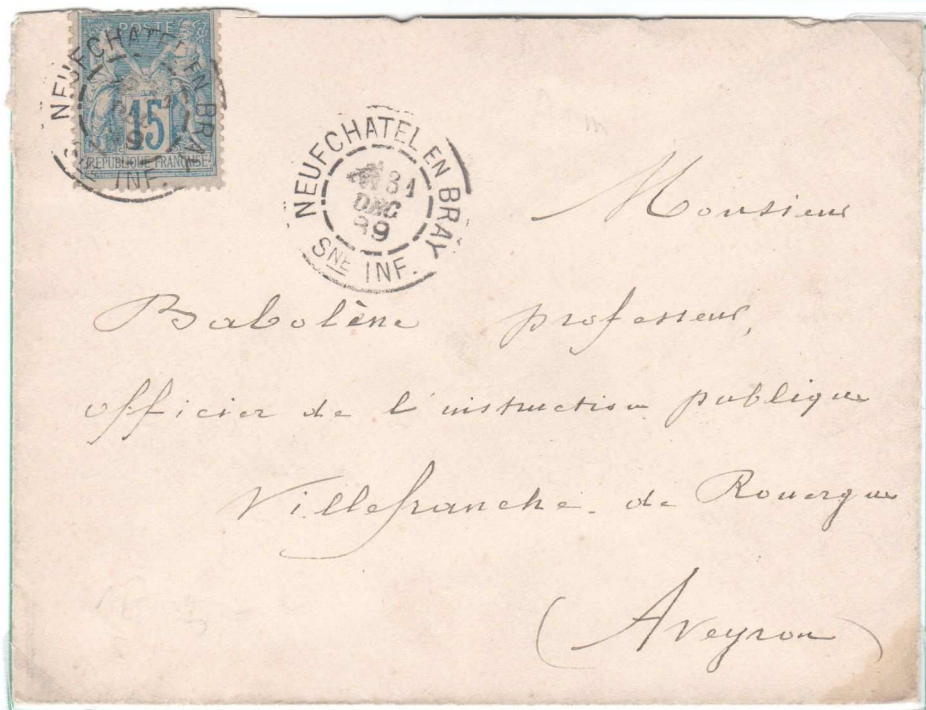 POSTE
15
REPUBLIQUE FRANÇAISE
NEUFCHATEL EN BRAY
SNE INF.
NEUFCHATEL EN BRAY
31
DEC
89
SNE INF.
Monsieur
Babolène professeur,
officier de l'instruction publique
Villefranche. de Rouergue
(Aveyron)